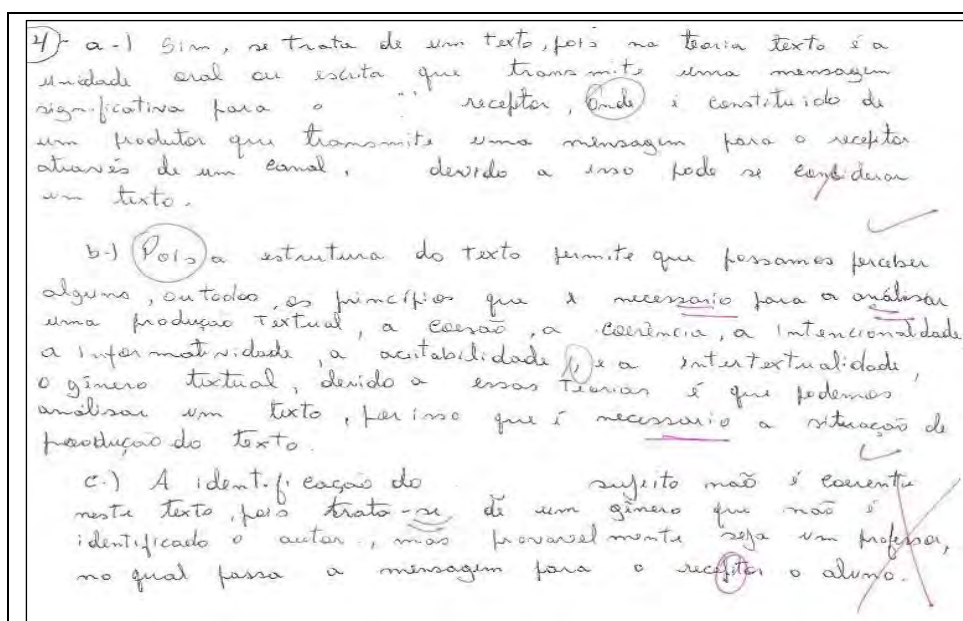 4)- a-) Sim, se trata de um texto, pois na teoria texto é a
unidade oral ou escrita que transmite uma mensagem
significativa para o receptor, onde é constituido de
um produtor que transmite uma mensagem para o receptor
através de um canal, devido a isso pode se considerar
um texto.
b-) Pois a estrutura do texto permite que possamos perceber
alguns, ou todos, os princípios que é necessario para a análisar
uma produção textual, a coesão, a coerência, a intencionalidade,
a informatividade, a aceitabilidade, e a intertextualidade,
o gênero textual, devido a essas teorias é que podemos
análisar um texto, por isso que é necessario a situação de
produção do texto.
c-) A identificação do sujeito não é coerente
neste texto, pois trata-se de um gênero que não é
identificado o autor, mas provavelmente seja um professor,
no qual passa a mensagem para o receptor o aluno.